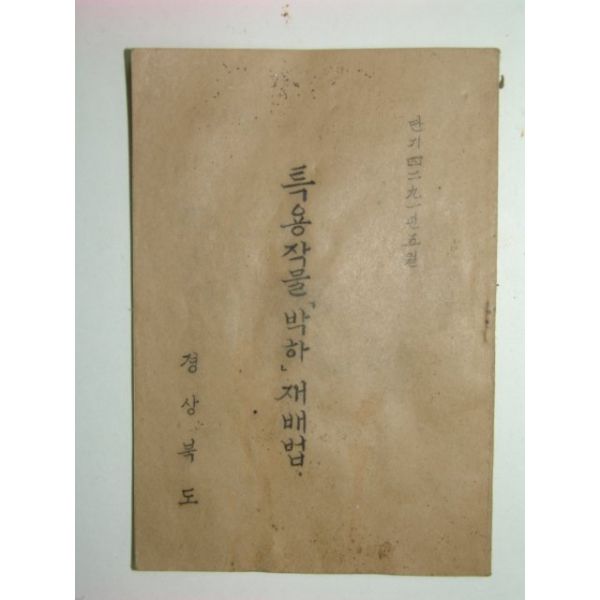 단기四二九一년五월
특용작물「박하」재배법
경상북도